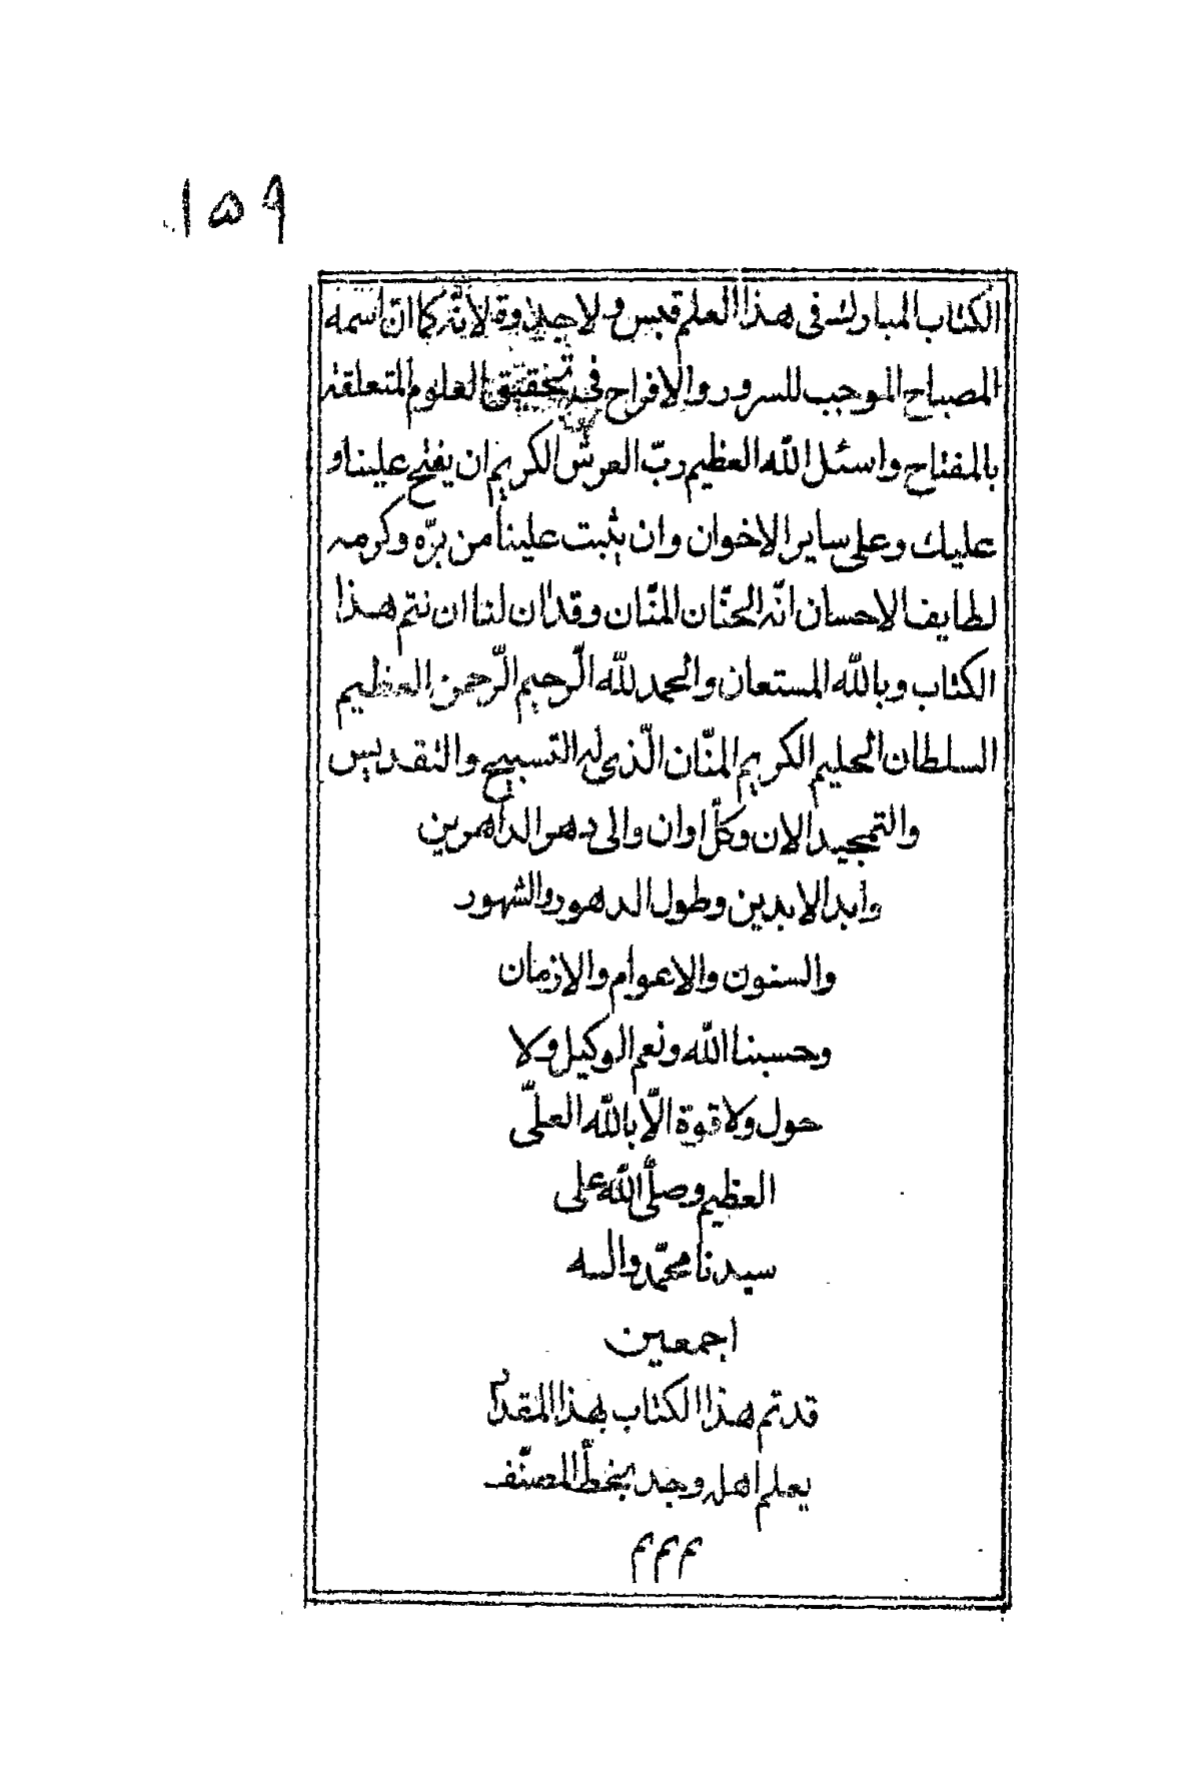 ۱۵۹
الكتاب المبارك فى هذا العلم قبس ولا جلاوة لانّه كما انّ اسمه
المصباح الموجب للسرور والافراح فى تحقيق العلوم المتعلقة
بالمفتاح واسئل الله العظيم ربّ العرش الكريم ان يفتح علينا و
عليك وعلى ساير الاخوان وان يثبت علينا من برّه وكرمه
لطايف الاحسان انّه الحنّان المنّان وقد ان لنا ان نتم هذا
الكتاب وبالله المستعان والحمد لله الرّحيم الرّحمن العظيم
السلطان الحليم الكريم المنّان الّذى له التسبيح والتقديس
والتمجيد الان وكلّ اوان والى دهر الداهرين
وابد الابدين وطول الدهور والشهور
والسنون والاعوام والازمان
وحسبنا الله ونعم الوكيل ولا
حول ولا قوة الّا بالله العلىّ
العظيم وصلّى الله على
سيدنا محمّد واله
اجمعين
قد تم هذا الكتاب بهذا المقدار
يعلم اهله وجد بخطّ المصنّف
م م م